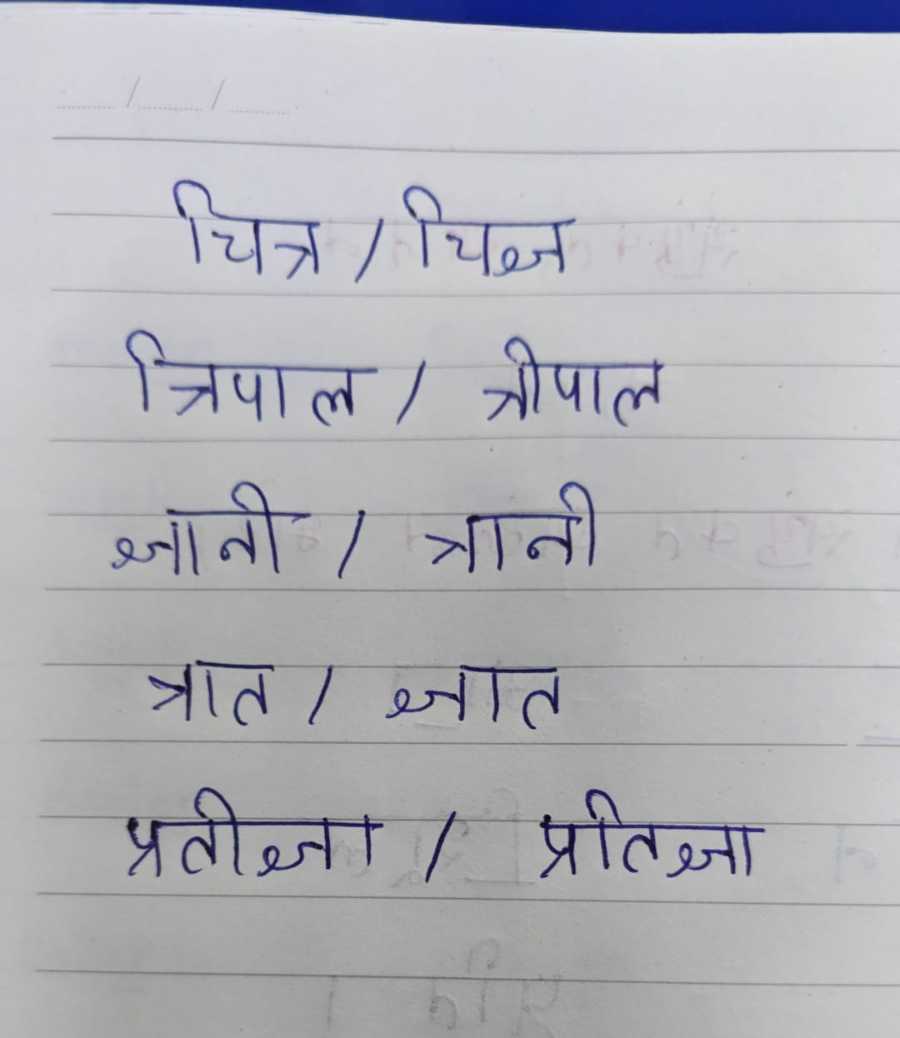 चित्र / चिज्ञ
त्रिपाल / त्रीपाल
ज्ञानी / त्रानी
त्रात / ज्ञात
प्रतीज्ञा / प्रतिज्ञा